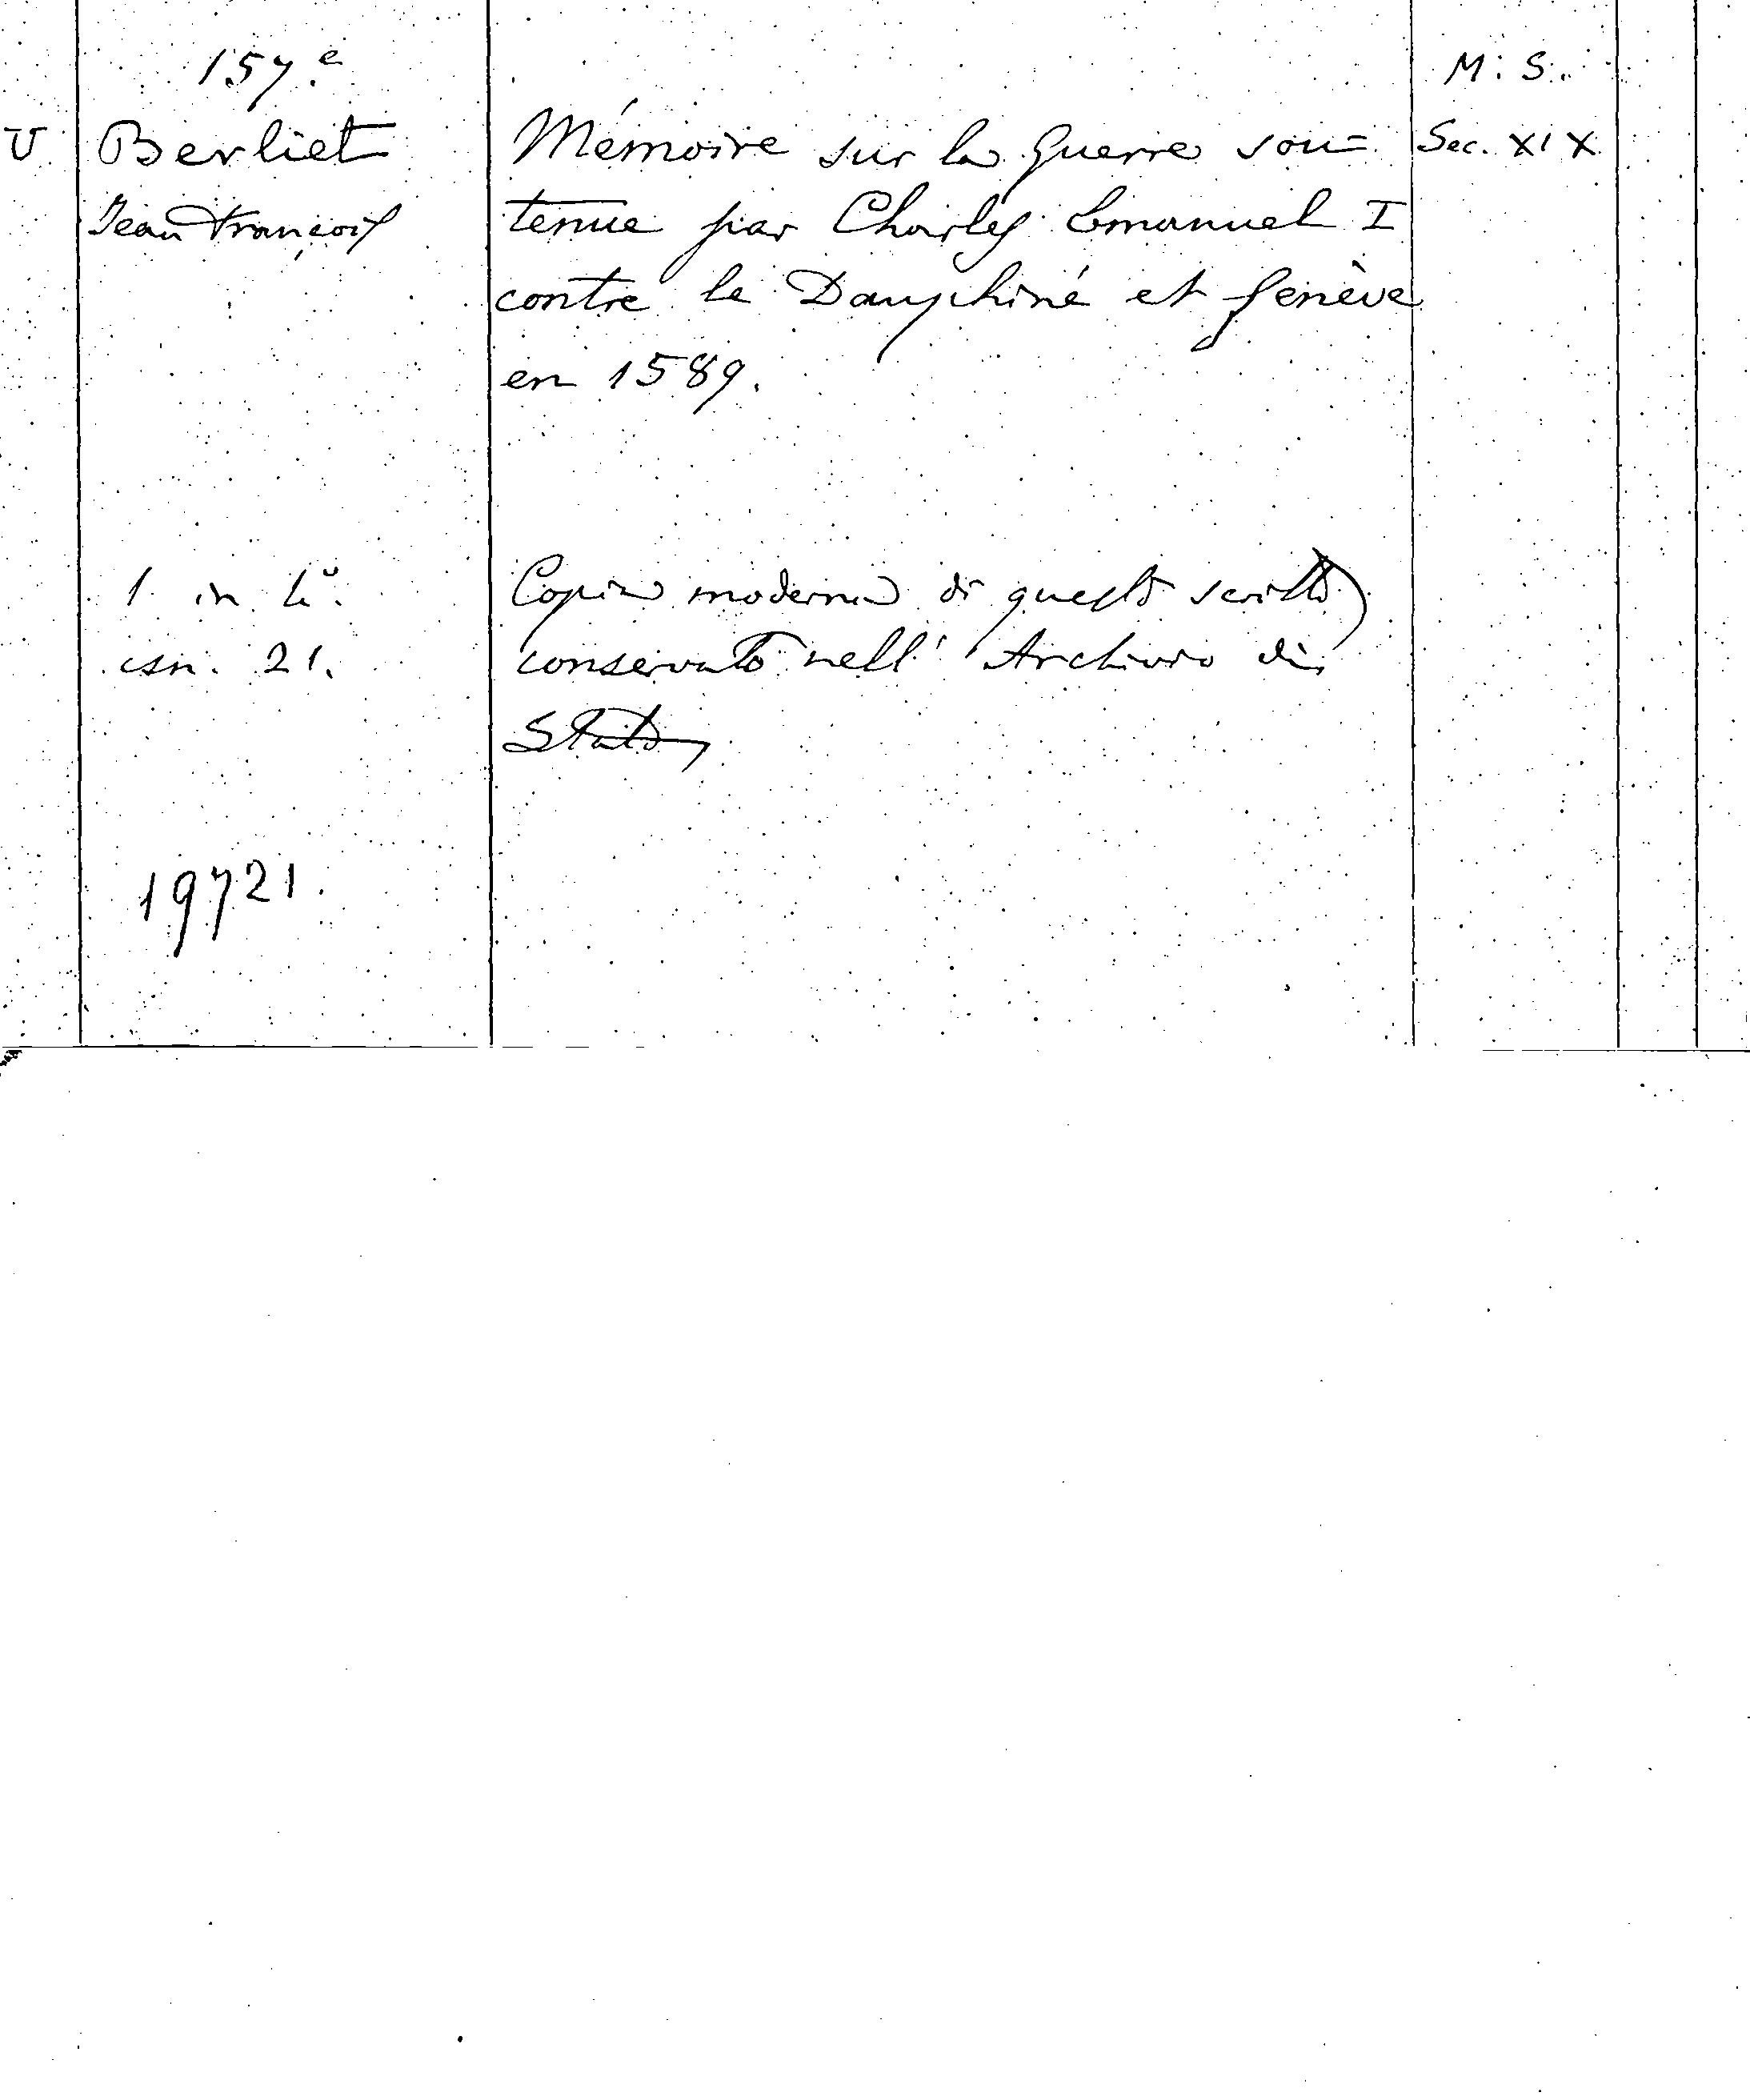 157.e
M. S.
U
Berliet
Jean François
Mémoire sur la guerre sou=
tenue par Charles Emanuel I
contre le Dauphiné et Genève
en 1589.
Sec. XIX
1 in 4º.
csn. 21.
Copia moderna di questo scritto
conservato nell' Archivio di
Stato
19721.